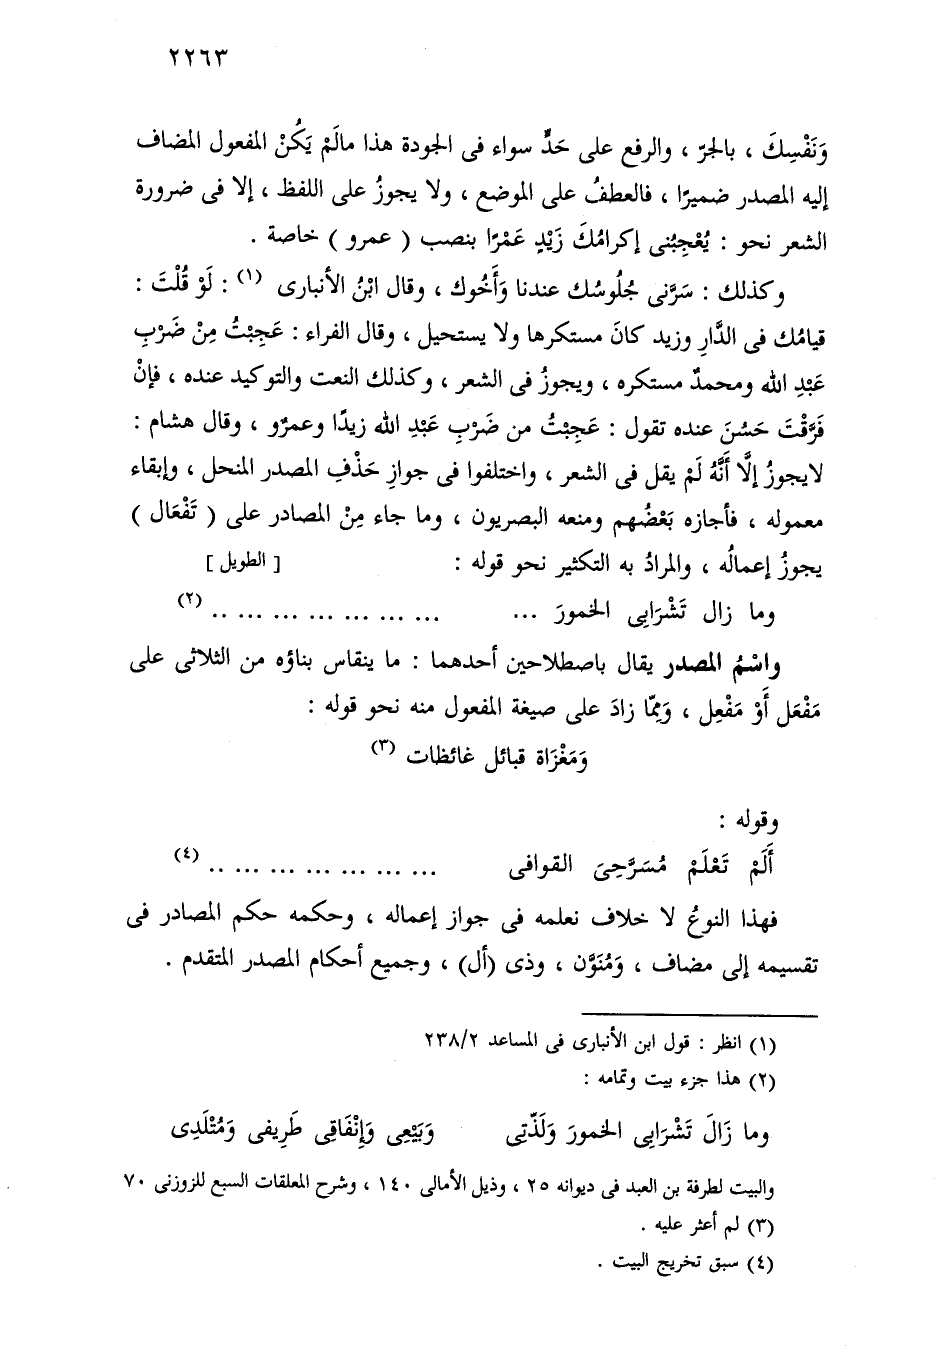 ٢٢٦٣
وَنَفْسِكَ ، بالجرّ ، والرفع على حَدٍّ سواء فى الجودة هذا مالَمْ يَكُنْ المفعول المضاف
إليه المصدر ضميرًا ، فالعطفُ على الموضع ، ولا يجوزُ على اللفظ ، إلا فى ضرورة
الشعر نحو : يُعْجِبُنى إكرامُكَ زَيْدٍ عَمْرًا بنصب ( عمرو ) خاصة .
وكذلك : سَرَّنى جُلُوسُك عندنا وَأَخُوك ، وقال ابْنُ الأنبارى (١) : لَوْ قُلْتَ :
قيامُك فى الدَّارِ وزيد كانَ مستكرها ولا يستحيل ، وقال الفراء : عَجِبْتُ مِنْ ضَرْبِ
عَبْدِ الله ومحمدٌ مستكره ، ويجوزُ فى الشعر ، وكذلك النعت والتوكيد عنده ، فإنْ
فَرَّقْتَ حَسُنَ عنده تقول : عَجِبْتُ من ضَرْبِ عَبْدِ الله زيدًا وعمرٌو ، وقال هشام :
لايجوزُ إلَّا أَنَّهُ لَمْ يقل فى الشعر ، واختلفوا فى جوازِ حَذْفِ المصدر المنحل ، وإبقاء
معموله ، فأجازه بَعْضُهم ومنعه البصريون ، وما جاء مِنْ المصادر على ( تَفْعَال )
يجوزُ إعمالُه ، والمرادُ به التكثير نحو قوله : [ الطويل ]
وما زال تَشْرَابِى الخمورَ ... ... ... ... ... ... ... .. (٢)
واسْمُ المصدر يقال باصطلاحين أحدهما : ما ينقاس بناؤه من الثلاثى على
مَفْعَل أَوْ مَفْعِل ، وَمِمّا زادَ على صيغة المفعول منه نحو قوله :
وَمَغْزَاة قبائل غائظات (٣)
وقوله :
أَلَمْ تَعْلَمْ مُسَرَّحِىَ القوافى ... ... ... ... ... ... .. (٤)
فهذا النوعُ لا خلاف نعلمه فى جواز إعماله ، وحكمه حكم المصادر فى
تقسيمه إلى مضاف ، وَمُنَوَّن ، وذى (أل) ، وجميع أحكام المصدر المتقدم .
(١) انظر : قول ابن الأنبارى فى المساعد ٢٣٨/٢
(٢) هذا جزء بيت وتمامه :
وما زَالَ تَشْرَابِى الخمورَ وَلَذّتِى وَبَيْعِى وَإِنْفَاقِى طَرِيفى وَمُتْلَدِى
والبيت لطرفة بن العبد فى ديوانه ٢٥ ، وذيل الأمالى ١٤٠ ، وشرح المعلقات السبع للزوزنى ٧٠
(٣) لم أعثر عليه .
(٤) سبق تخريج البيت .